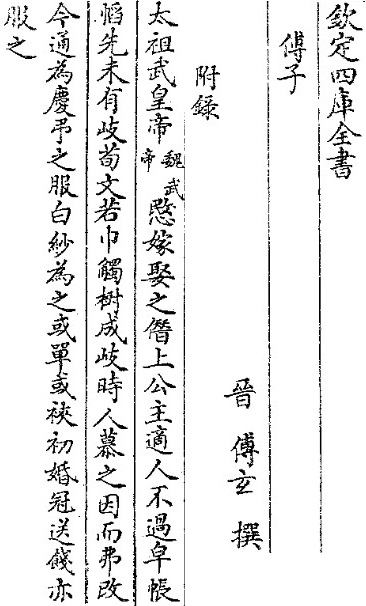 欽定四庫全書
傅子
晉 傅玄 撰
附録
太祖武皇帝魏武帝愍嫁娶之僭上公主適人不過皁帳
帢先未有歧荀文若巾觸樹成歧時人慕之因而弗改
今通為慶弔之服白紗為之或單或裌初婚冠送餞亦
服之